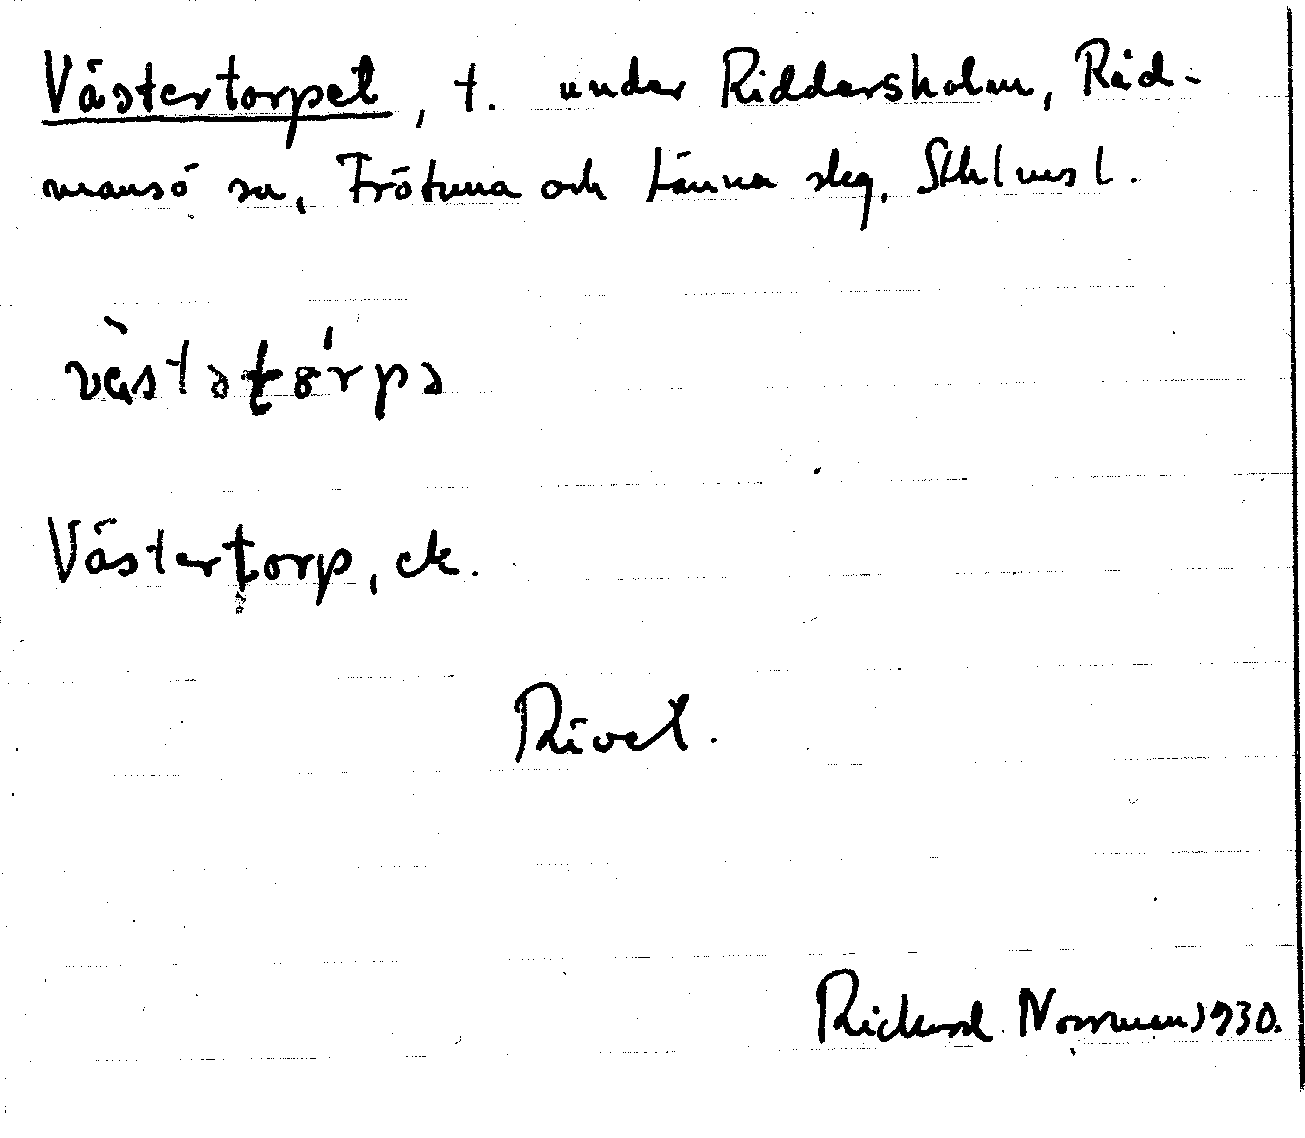 Västertorpet, t. under Riddersholm, Råd-
mansö sn, Frötuna och Länna skg, Sthlms l.
Västertorp, ek.
Rivet.
Rickard Norrman 1930.